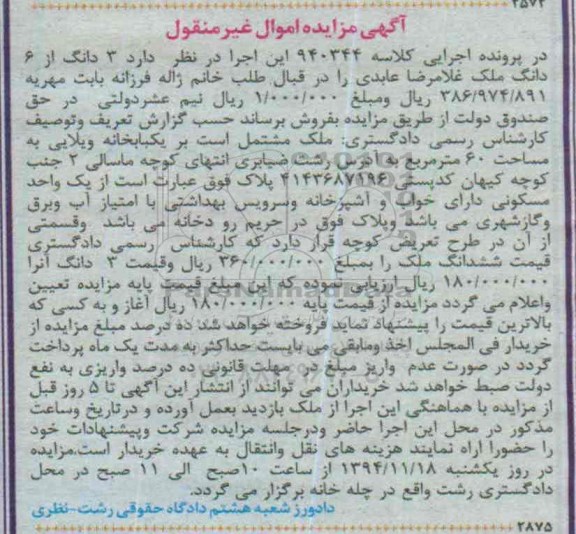 ۲۵۷۲
آگهی مزایده اموال غیر منقول
در پرونده اجرایی کلاسه ۹۴۰۳۴۴ این اجرا در نظر دارد ۳ دانگ از ۶
دانگ ملک غلامرضا عابدی را در قبال طلب خانم ژاله فرزانه بابت مهریه
۳۸۶/۹۷۴/۸۹۱ ریال ومبلغ ۱/۰۰۰/۰۰۰ ریال نیم عشردولتی در حق
صندوق دولت از طریق مزایده بفروش برساند حسب گزارش تعریف وتوصیف
کارشناس رسمی دادگستری: ملک مشتمل است بر یکبابخانه ویلایی به
مساحت ۶۰ مترمربع به آدرس رشت صیابری انتهای کوچه ماسالی ۲ جنب
کوچه کیهان کدپستی ۴۱۴۳۶۸۷۱۹۶ پلاک فوق عبارت است از یک واحد
مسکونی دارای خواب و آشپزخانه وسرویس بهداشتی با امتیاز آب وبرق
وگازشهری می باشد وپلاک فوق در حریم رو دخانه می باشد وقسمتی
از آن در طرح تعریض کوچه قرار دارد که کارشناس رسمی دادگستری
قیمت ششدانگ ملک را بمبلغ ۳۶۰/۰۰۰/۰۰۰ ریال وقیمت ۳ دانگ آنرا
۱۸۰/۰۰۰/۰۰۰ ریال ارزیابی نموده که این مبلغ قیمت پایه مزایده تعیین
واعلام می گردد مزایده از قیمت پایه ۱۸۰/۰۰۰/۰۰۰ ریال آغاز و به کسی که
بالاترین قیمت را پیشنهاد نماید فروخته خواهد شد ده درصد مبلغ مزایده از
خریدار فی المجلس اخذ ومابقی می بایست حداکثر به مدت یک ماه پرداخت
گردد در صورت عدم واریز مبلغ در مهلت قانونی ده درصد واریزی به نفع
دولت ضبط خواهد شد خریداران می توانند از انتشار این آگهی تا ۵ روز قبل
از مزایده با هماهنگی این اجرا از ملک بازدید بعمل آورده و درتاریخ وساعت
مذکور در محل این اجرا حاضر ودرجلسه مزایده شرکت وپیشنهادات خود
را حضورا اراه نمایند هزینه های نقل وانتقال به عهده خریدار است.مزایده
در روز یکشنبه ۱۳۹۴/۱۱/۱۸ از ساعت ۱۰صبح الی ۱۱ صبح در محل
دادگستری رشت واقع در چله خانه برگزار می گردد.
دادورز شعبه هشتم دادگاه حقوقی رشت-نظری
۲۸۷۵